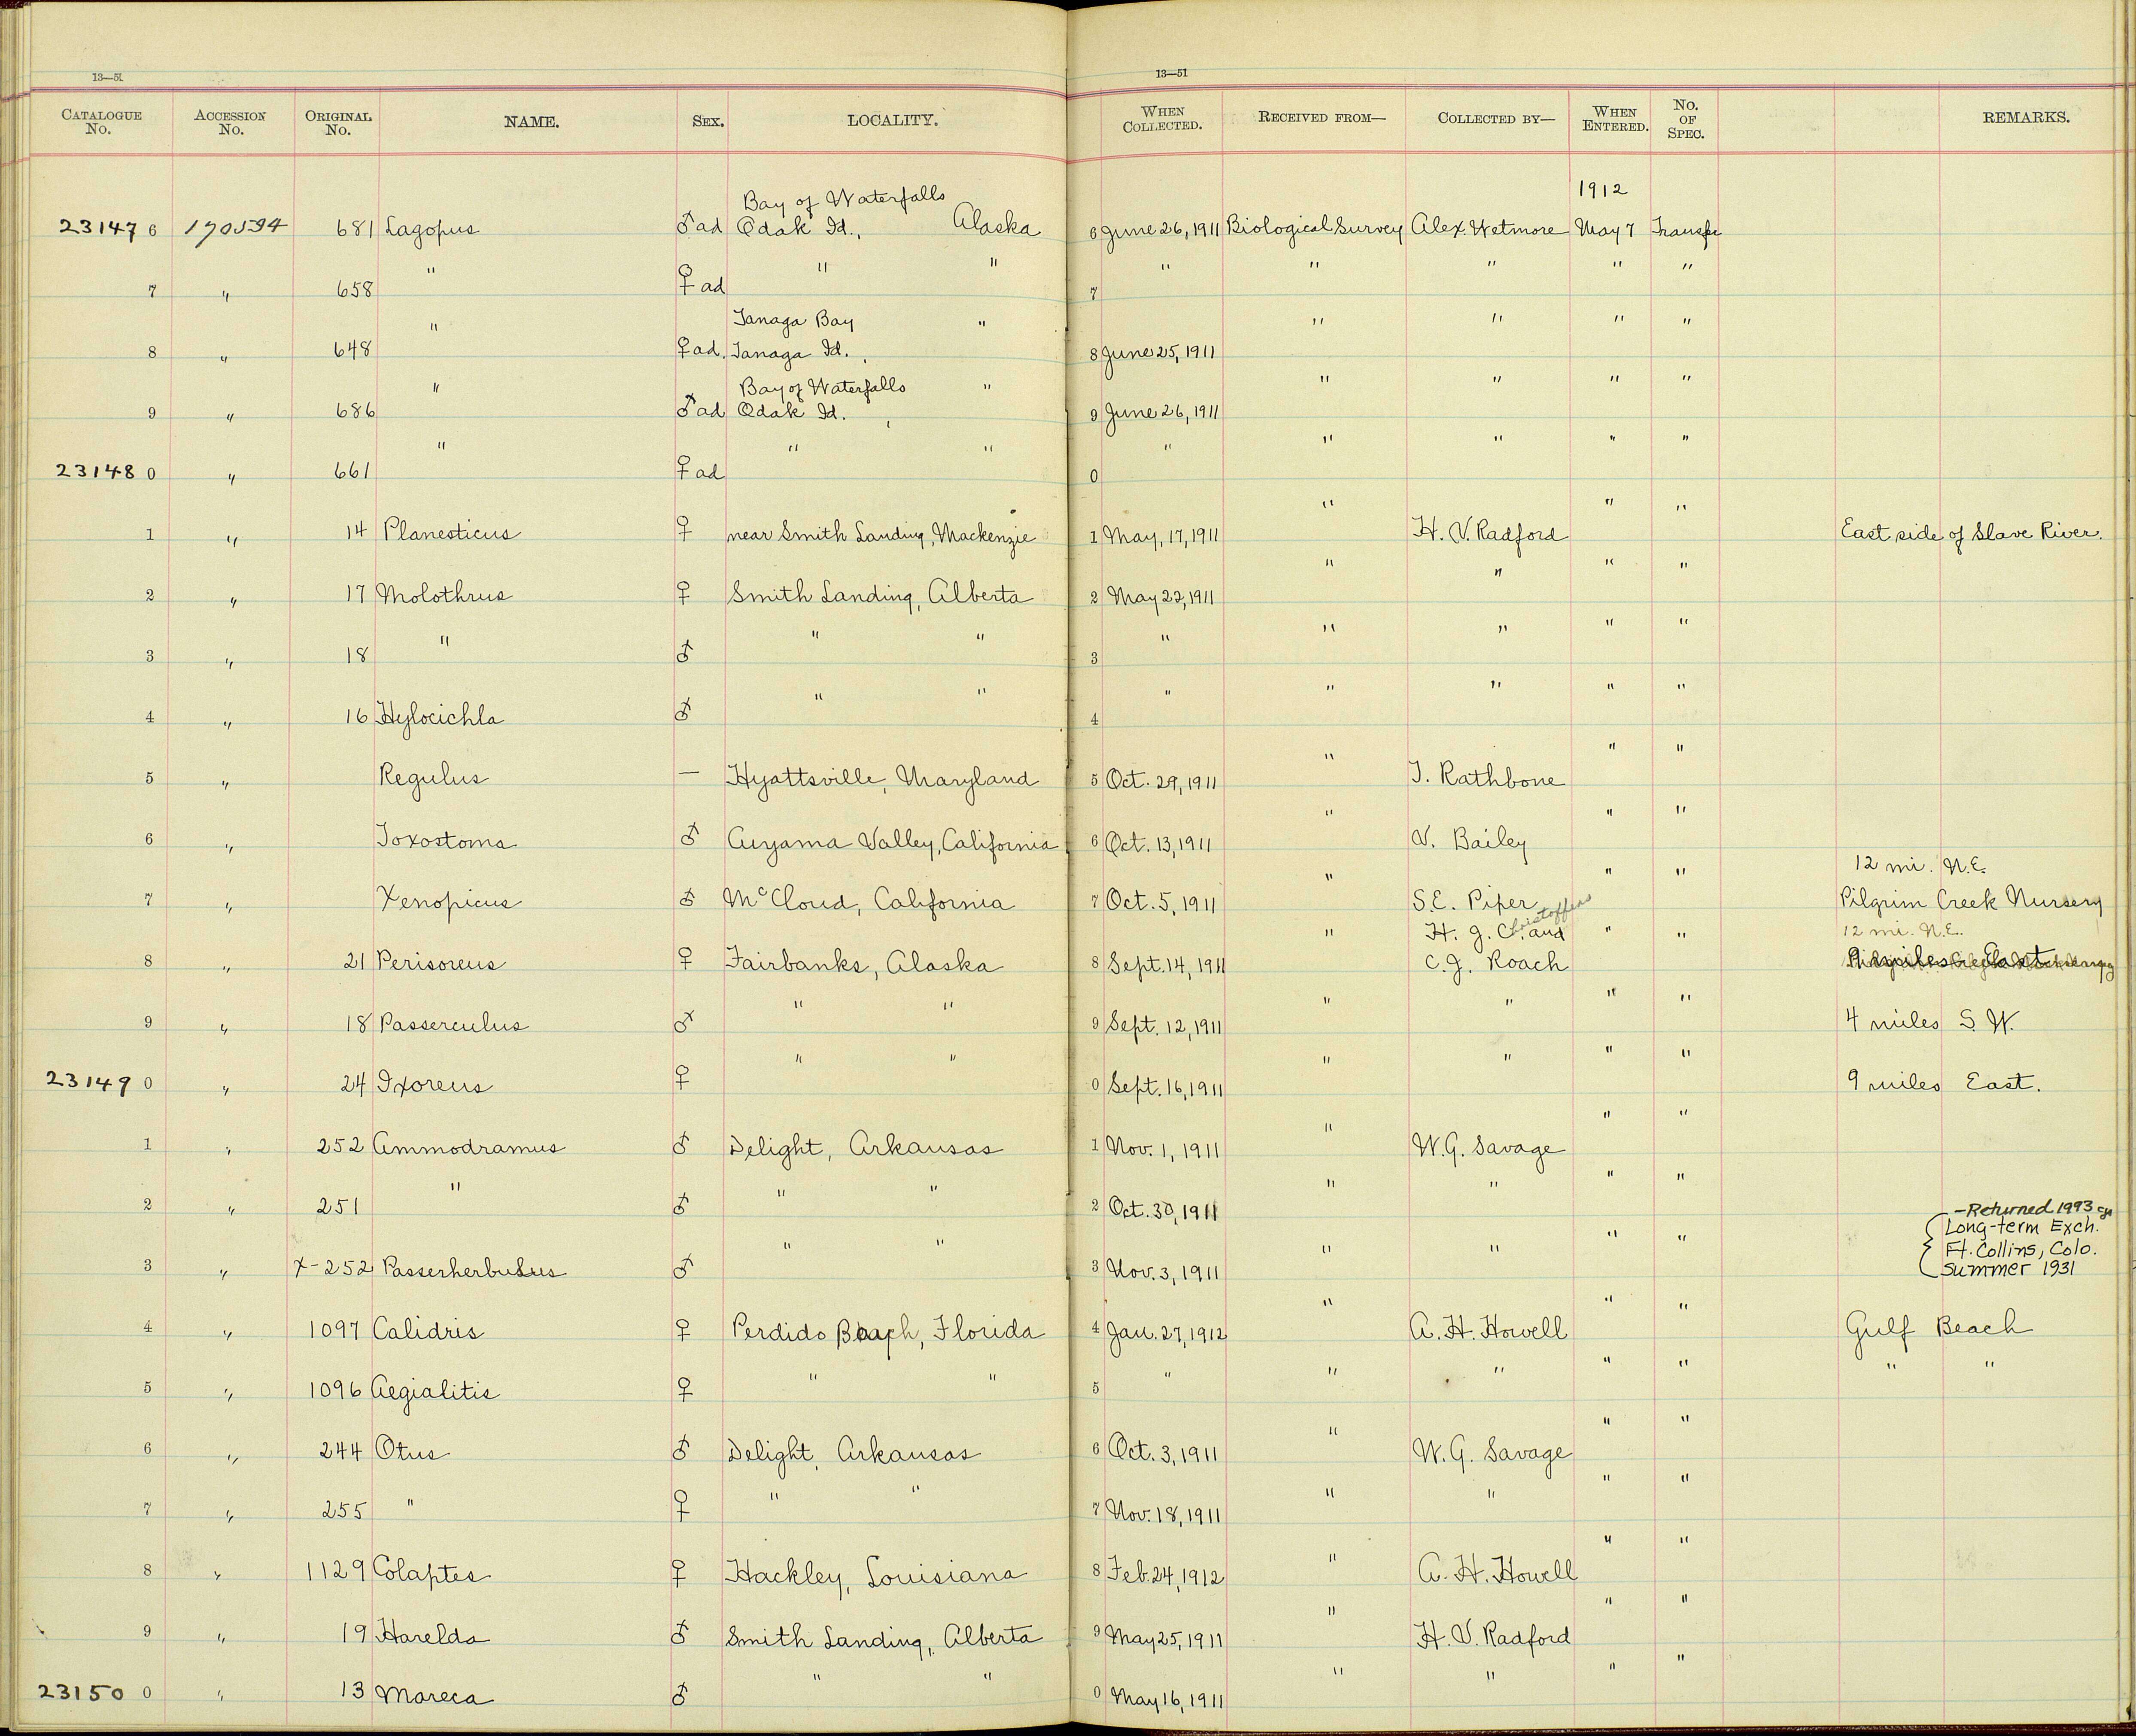 13—51 13—51
CATALOGUE No. ACCESSION No. ORIGINAL No. NAME. SEX. LOCALITY. WHEN COLLECTED. RECEIVED FROM— COLLECTED BY— WHEN ENTERED. No. OF SPEC. REMARKS.
1912
Bay of Waterfalls
23147 6 170594 681 Lagopus ♂ ad Adak Id., Alaska 6 June 26, 1911 Biological Survey Alex. Wetmore May 7 Transfer
" " " " " " " "
7 " 658 ♀ ad 7
" Tanaga Bay " " " " "
8 " 648 ♀ ad. Tanaga Id. 8 June 25, 1911
" Bay of Waterfalls " " " " "
9 " 686 ♂ ad Adak Id. 9 June 26, 1911
" " " " " " " "
23148 0 " 661 ♀ ad 0
" " "
1 " 14 Planesticus ♀ near Smith Landing, Mackenzie 1 May, 17, 1911 H. V. Radford East side of Slave River.
" " " "
2 " 17 Molothrus ♀ Smith Landing, Alberta 2 May 22, 1911
" " " " " " " "
3 " 18 ♂ 3
" " " " " " "
4 " 16 Hylocichla ♂ 4
" " "
5 " Regulus — Hyattsville, Maryland 5 Oct. 29, 1911 J. Rathbone
" " "
6 " Toxostoma ♂ Cuyama Valley, California 6 Oct. 13, 1911 V. Bailey
" " " 12 mi. N.E.
7 " Xenopicus ♂ McCloud, California 7 Oct. 5, 1911 S.E. Piper Pilgrim Creek Nursery
" H. J. C. and Christoffers " " 12 mi. N.E.
8 " 21 Perisoreus ♀ Fairbanks, Alaska 8 Sept. 14, 1911 C.J. Roach 9 miles East
" " " " " "
9 " 18 Passerculus ♂ 9 Sept. 12, 1911 4 miles S. W.
" " " " " "
23149 0 " 24 Ixoreus ♀ 0 Sept. 16, 1911 9 miles East.
" " "
1 " 252 Ammodramus ♂ Delight, Arkansas 1 Nov. 1, 1911 W.G. Savage
" " " " " " "
2 " 251 ♂ 2 Oct. 30, 1911
—Returned 1993
" " " " " " Long-term Exch.
Ft. Collins, Colo.
3 " X-252 Passerherbulus ♂ 3 Nov. 3, 1911 summer 1931
" " "
4 " 1097 Calidris ♀ Perdido Beach, Florida 4 Jan. 27, 1912 A. H. Howell Gulf Beach
" " " " " " " " "
5 " 1096 Aegialitis ♀ 5
" " "
6 " 244 Otus ♂ Delight, Arkansas 6 Oct. 3, 1911 W. G. Savage
" " " " " "
7 " 255 " ♀ 7 Nov. 18, 1911
" " "
8 " 1129 Colaptes ♀ Hackley, Louisiana 8 Feb. 24, 1912 A. H. Howell
" " "
9 " 19 Harelda ♂ Smith Landing, Alberta 9 May 25, 1911 H. V. Radford
" " " " " "
23150 0 " 13 Mareca ♂ 0 May 16, 1911